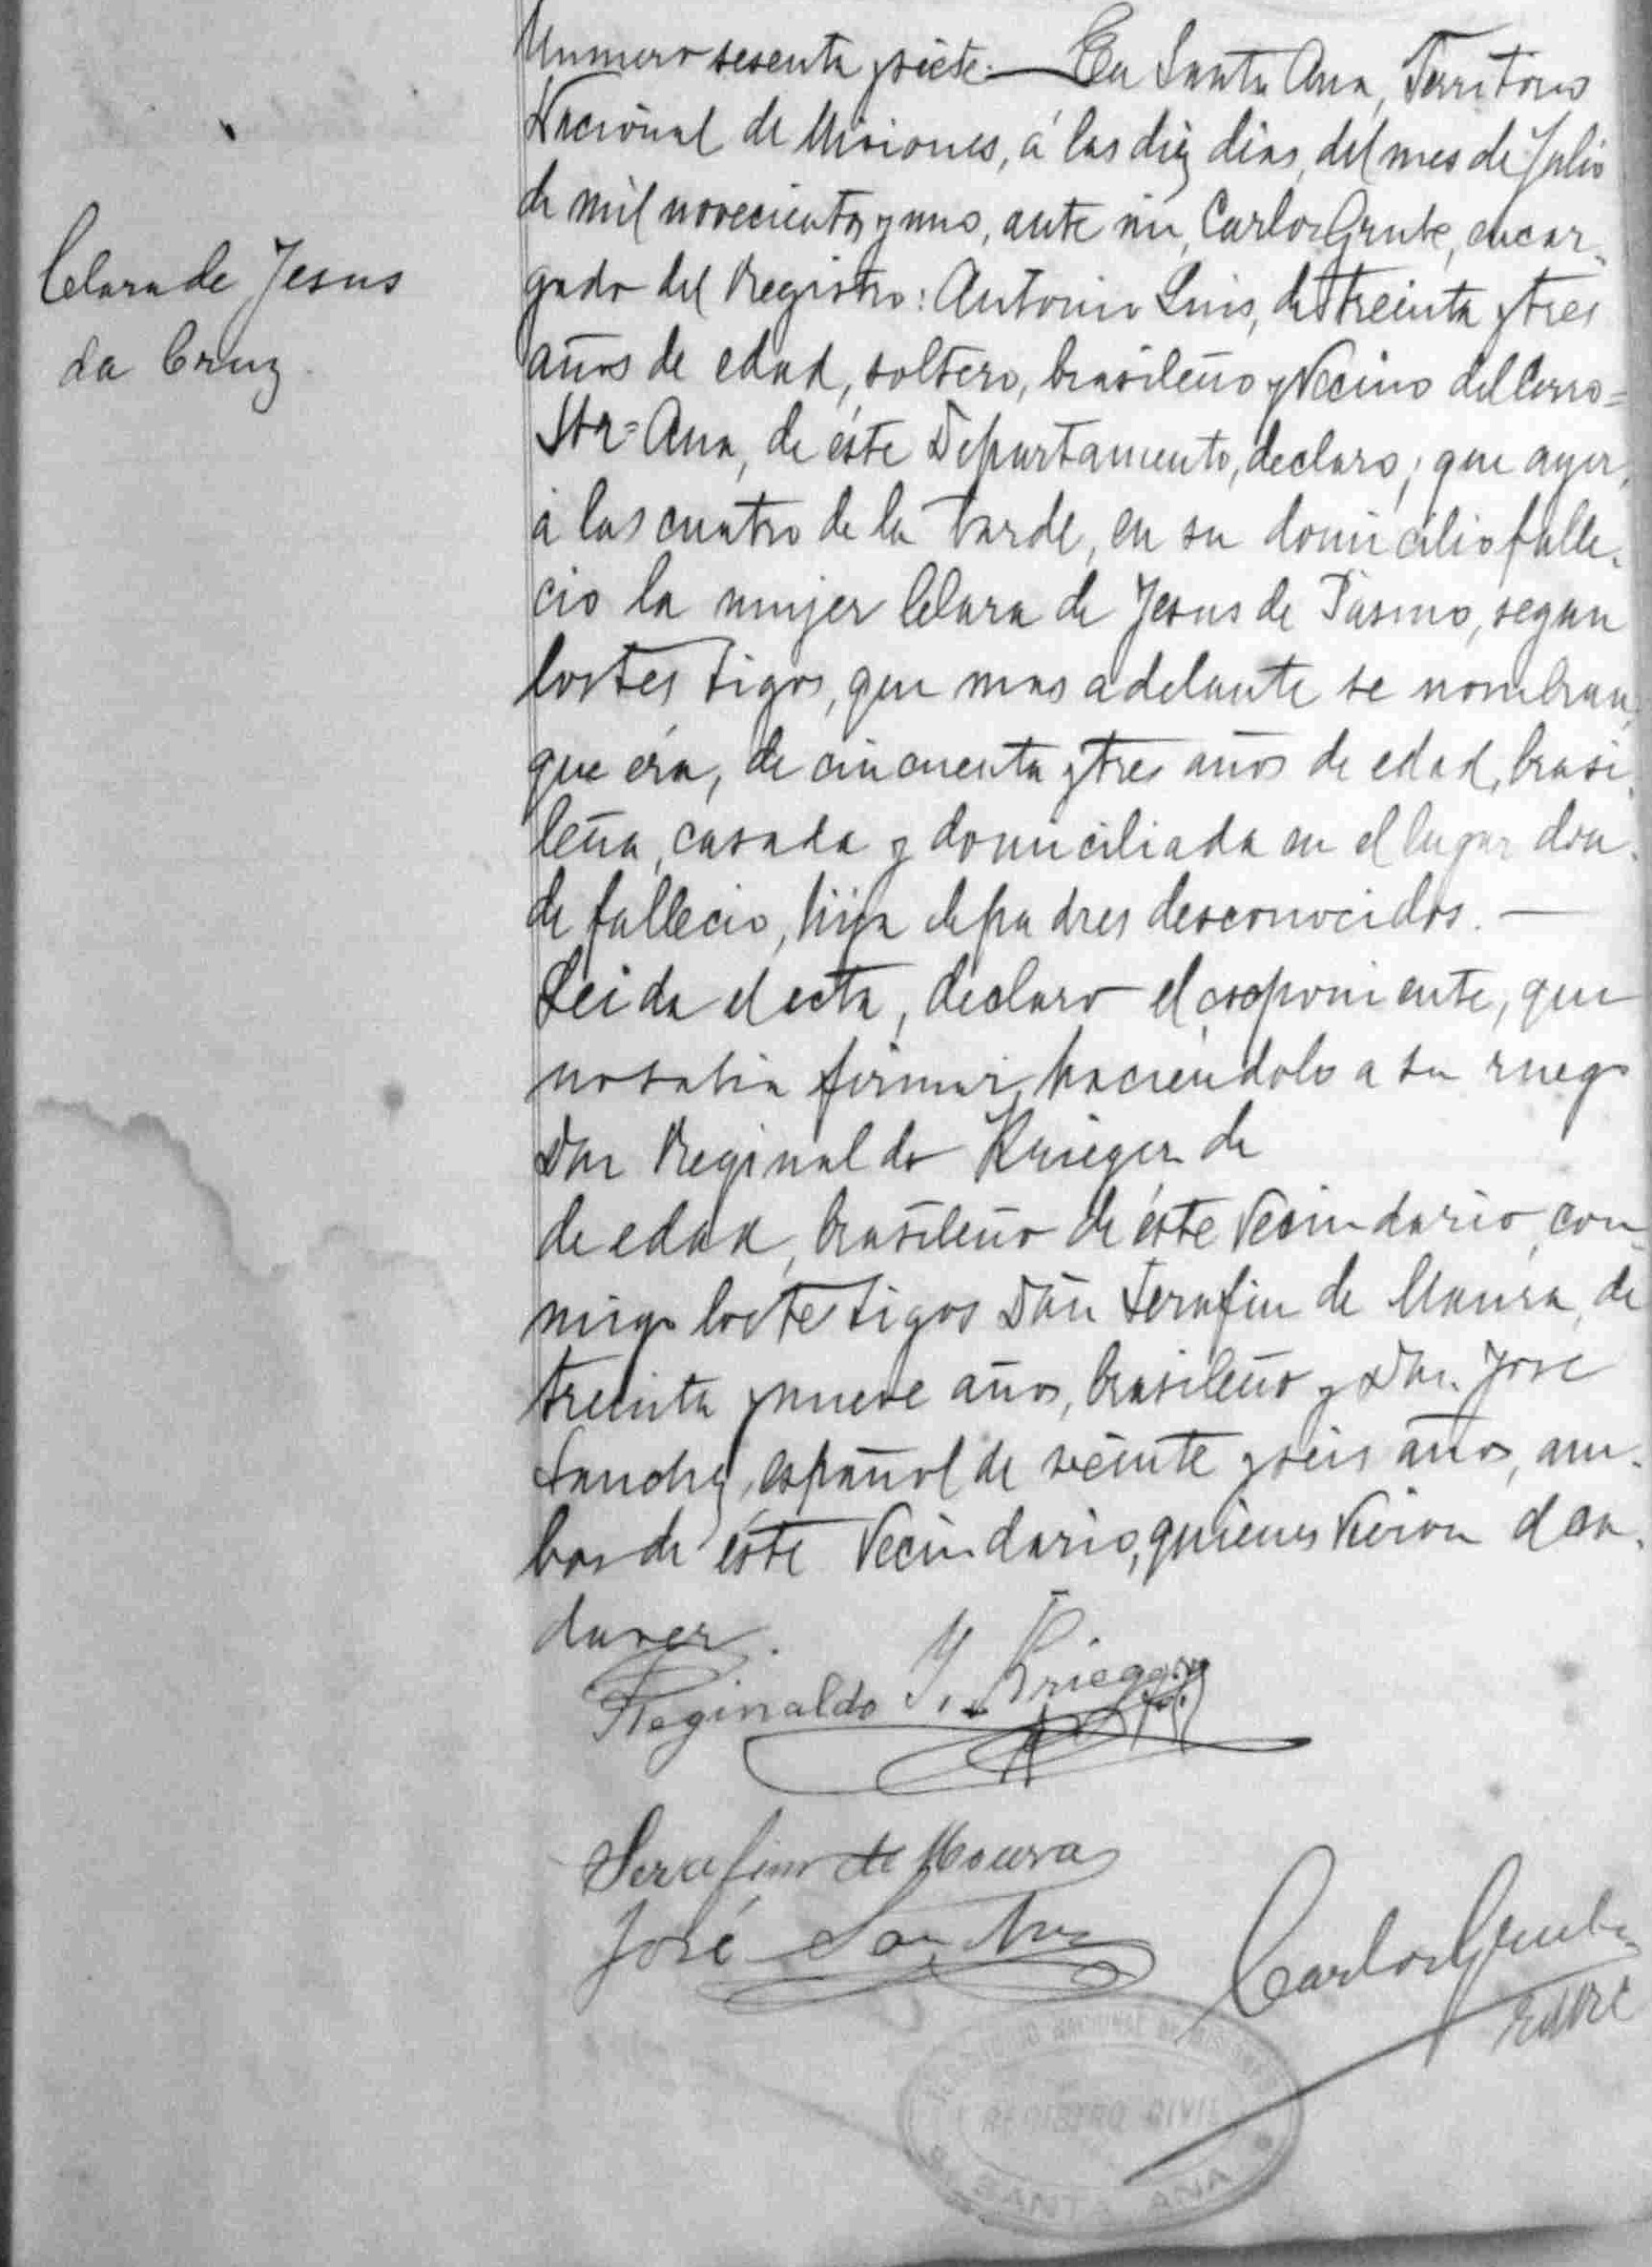 Clara de Jesus
da Cruz
Numero sesenta y siete.— En Santa Ana, Territorio
Nacional de Misiones, á los diez dias, del mes de Julio
de mil novecientos y uno, ante mi, Carlos Grube, encar-
gado del Registro: Antonio Luis, de treinta y tres
años de edad, soltero, brasileño y vecino del Cerro=
Sta= Ana, de éste Departamento, declaro; que ayer,
á las cuatro de la tarde, en su domicilio falle-
cio la mujer Clara de Jesus de Pasmo, segun
los testigos, que mas adelante se nombran,
que éra, de cincuenta y tres años de edad, brasi-
leña, casada y domiciliada en el lugar don-
de fallecio, hija de padres desconocidos. —
Leida el acta, declaro el esxponiente, que
no sabia firmar, haciéndolo a su ruego
Don Reginaldo Krieger de
de edad, brasileño de éste vecindario, con
migo los testigos Don Serafin de Maura, de
treinta y nueve años, brasileño y Don. José
Sanchez, español de veinte y seis años, am-
bos de éste vecindario, quienes vieron el ca-
daver.
Reginaldo Y. Krieger
Serafim de Moura
José Sanchez
Carlos Grube
TERRITORIO NACIONAL DE MISIONES
REGISTRO CIVIL
SANTA ANA